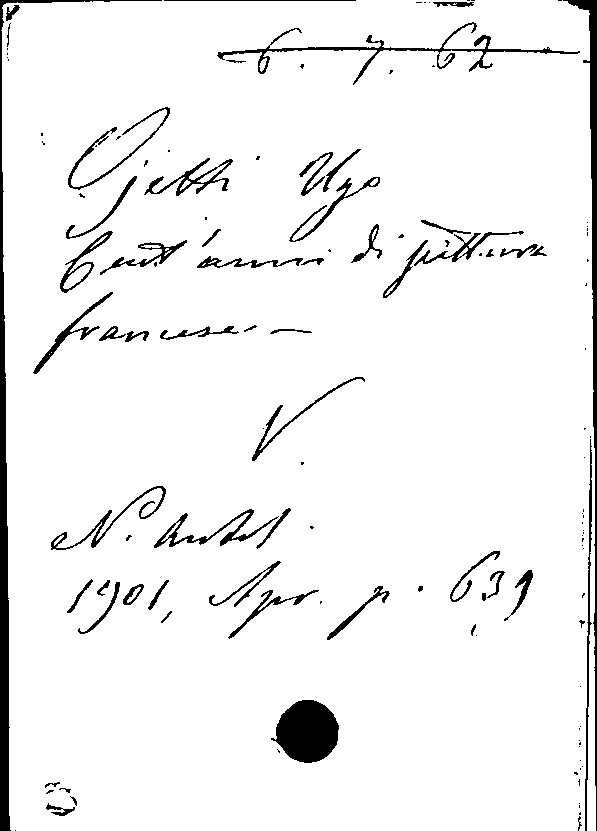 6. 7. 62
Ojetti Ugo
Cent'anni di pittura
francese —
V.
N. Antol.
1901, Apr. p. 639